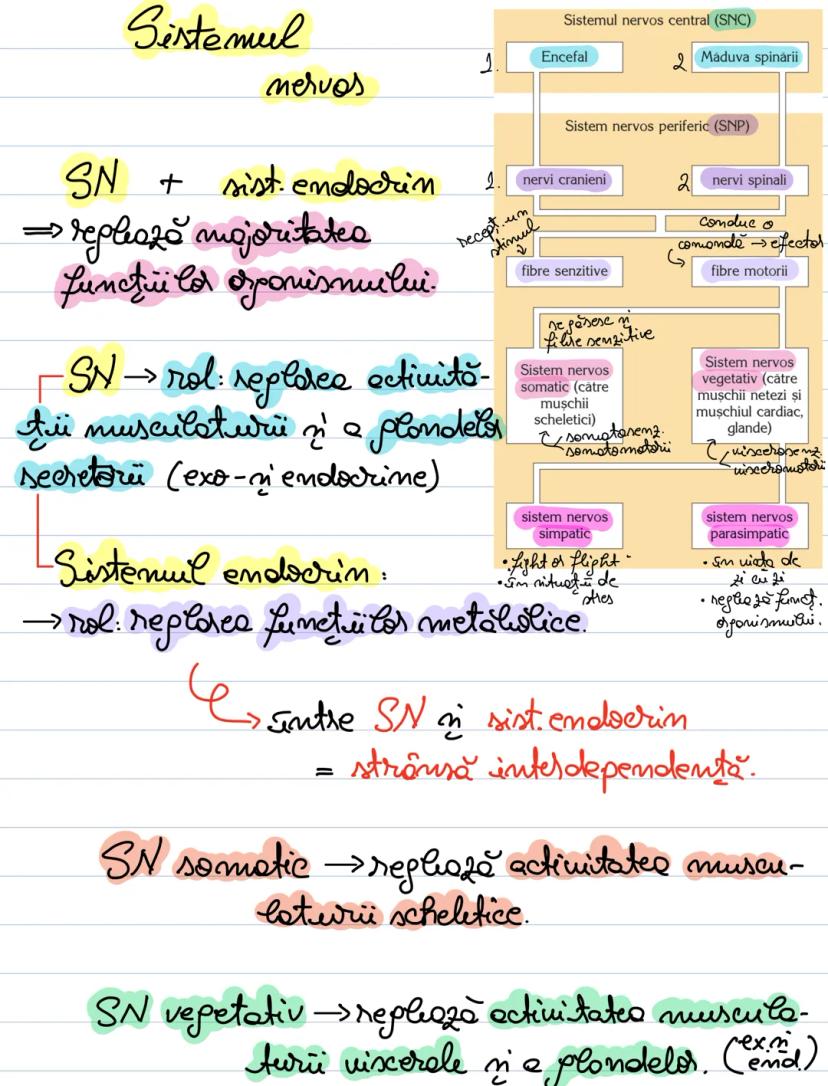 Sistemul
nervos
SN + sist. endocrin
⇒ reglează majoritatea
funcțiilor organismului.
SN → rol: reglarea activită-
ții musculaturii și a glandelor
secretorii (exo- și endocrine)
Sistemul endocrin:
→ rol: reglarea funcțiilor metabolice.
între SN și sist. endocrin
= strânsă interdependență.
SN somatic → reglează activitatea muscu-
laturii scheletice.
SN vegetativ → reglează activitatea muscula-
turii viscerale și a glandelor. (ex. și
end.)
Sistemul nervos central (SNC)
1. Encefal
2 Măduva spinării
Sistem nervos periferic (SNP)
1. nervi cranieni
2 nervi spinali
recepț. un
stimul
conduc o
comandă → efector
fibre senzitive
fibre motorii
se găsesc și
fibre senzitive
Sistem nervos
somatic (către
mușchii
scheletici)
somatosenz.
somatomotorii
Sistem nervos
vegetativ (către
mușchii netezi și
mușchiul cardiac,
glande)
viscerosenz.
visceromotorii
sistem nervos
simpatic
• fight or flight
• în situații de
stres
sistem nervos
parasimpatic
• în viața de
zi cu zi
• reglează funcț.
organismului.